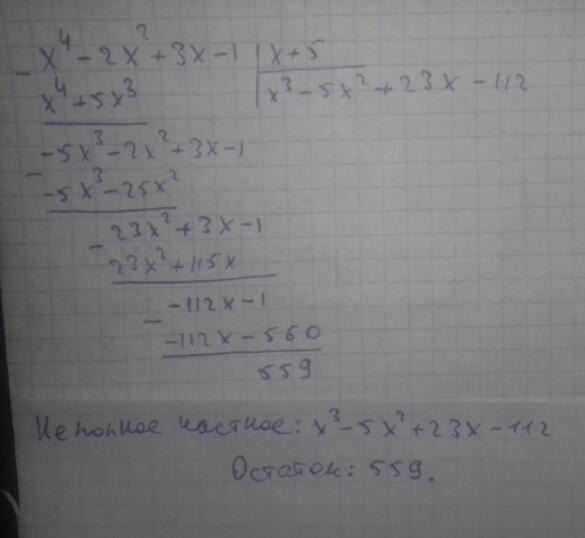 x⁴ - 2x² + 3x - 1 | x + 5
x⁴ + 5x³ | x³ - 5x² + 23x - 112
-5x³ - 2x² + 3x - 1
-5x³ - 25x²
23x² + 3x - 1
23x² + 115x
-112x - 1
-112x - 560
559
Неполное частное: x³ - 5x² + 23x - 112
Остаток: 559.